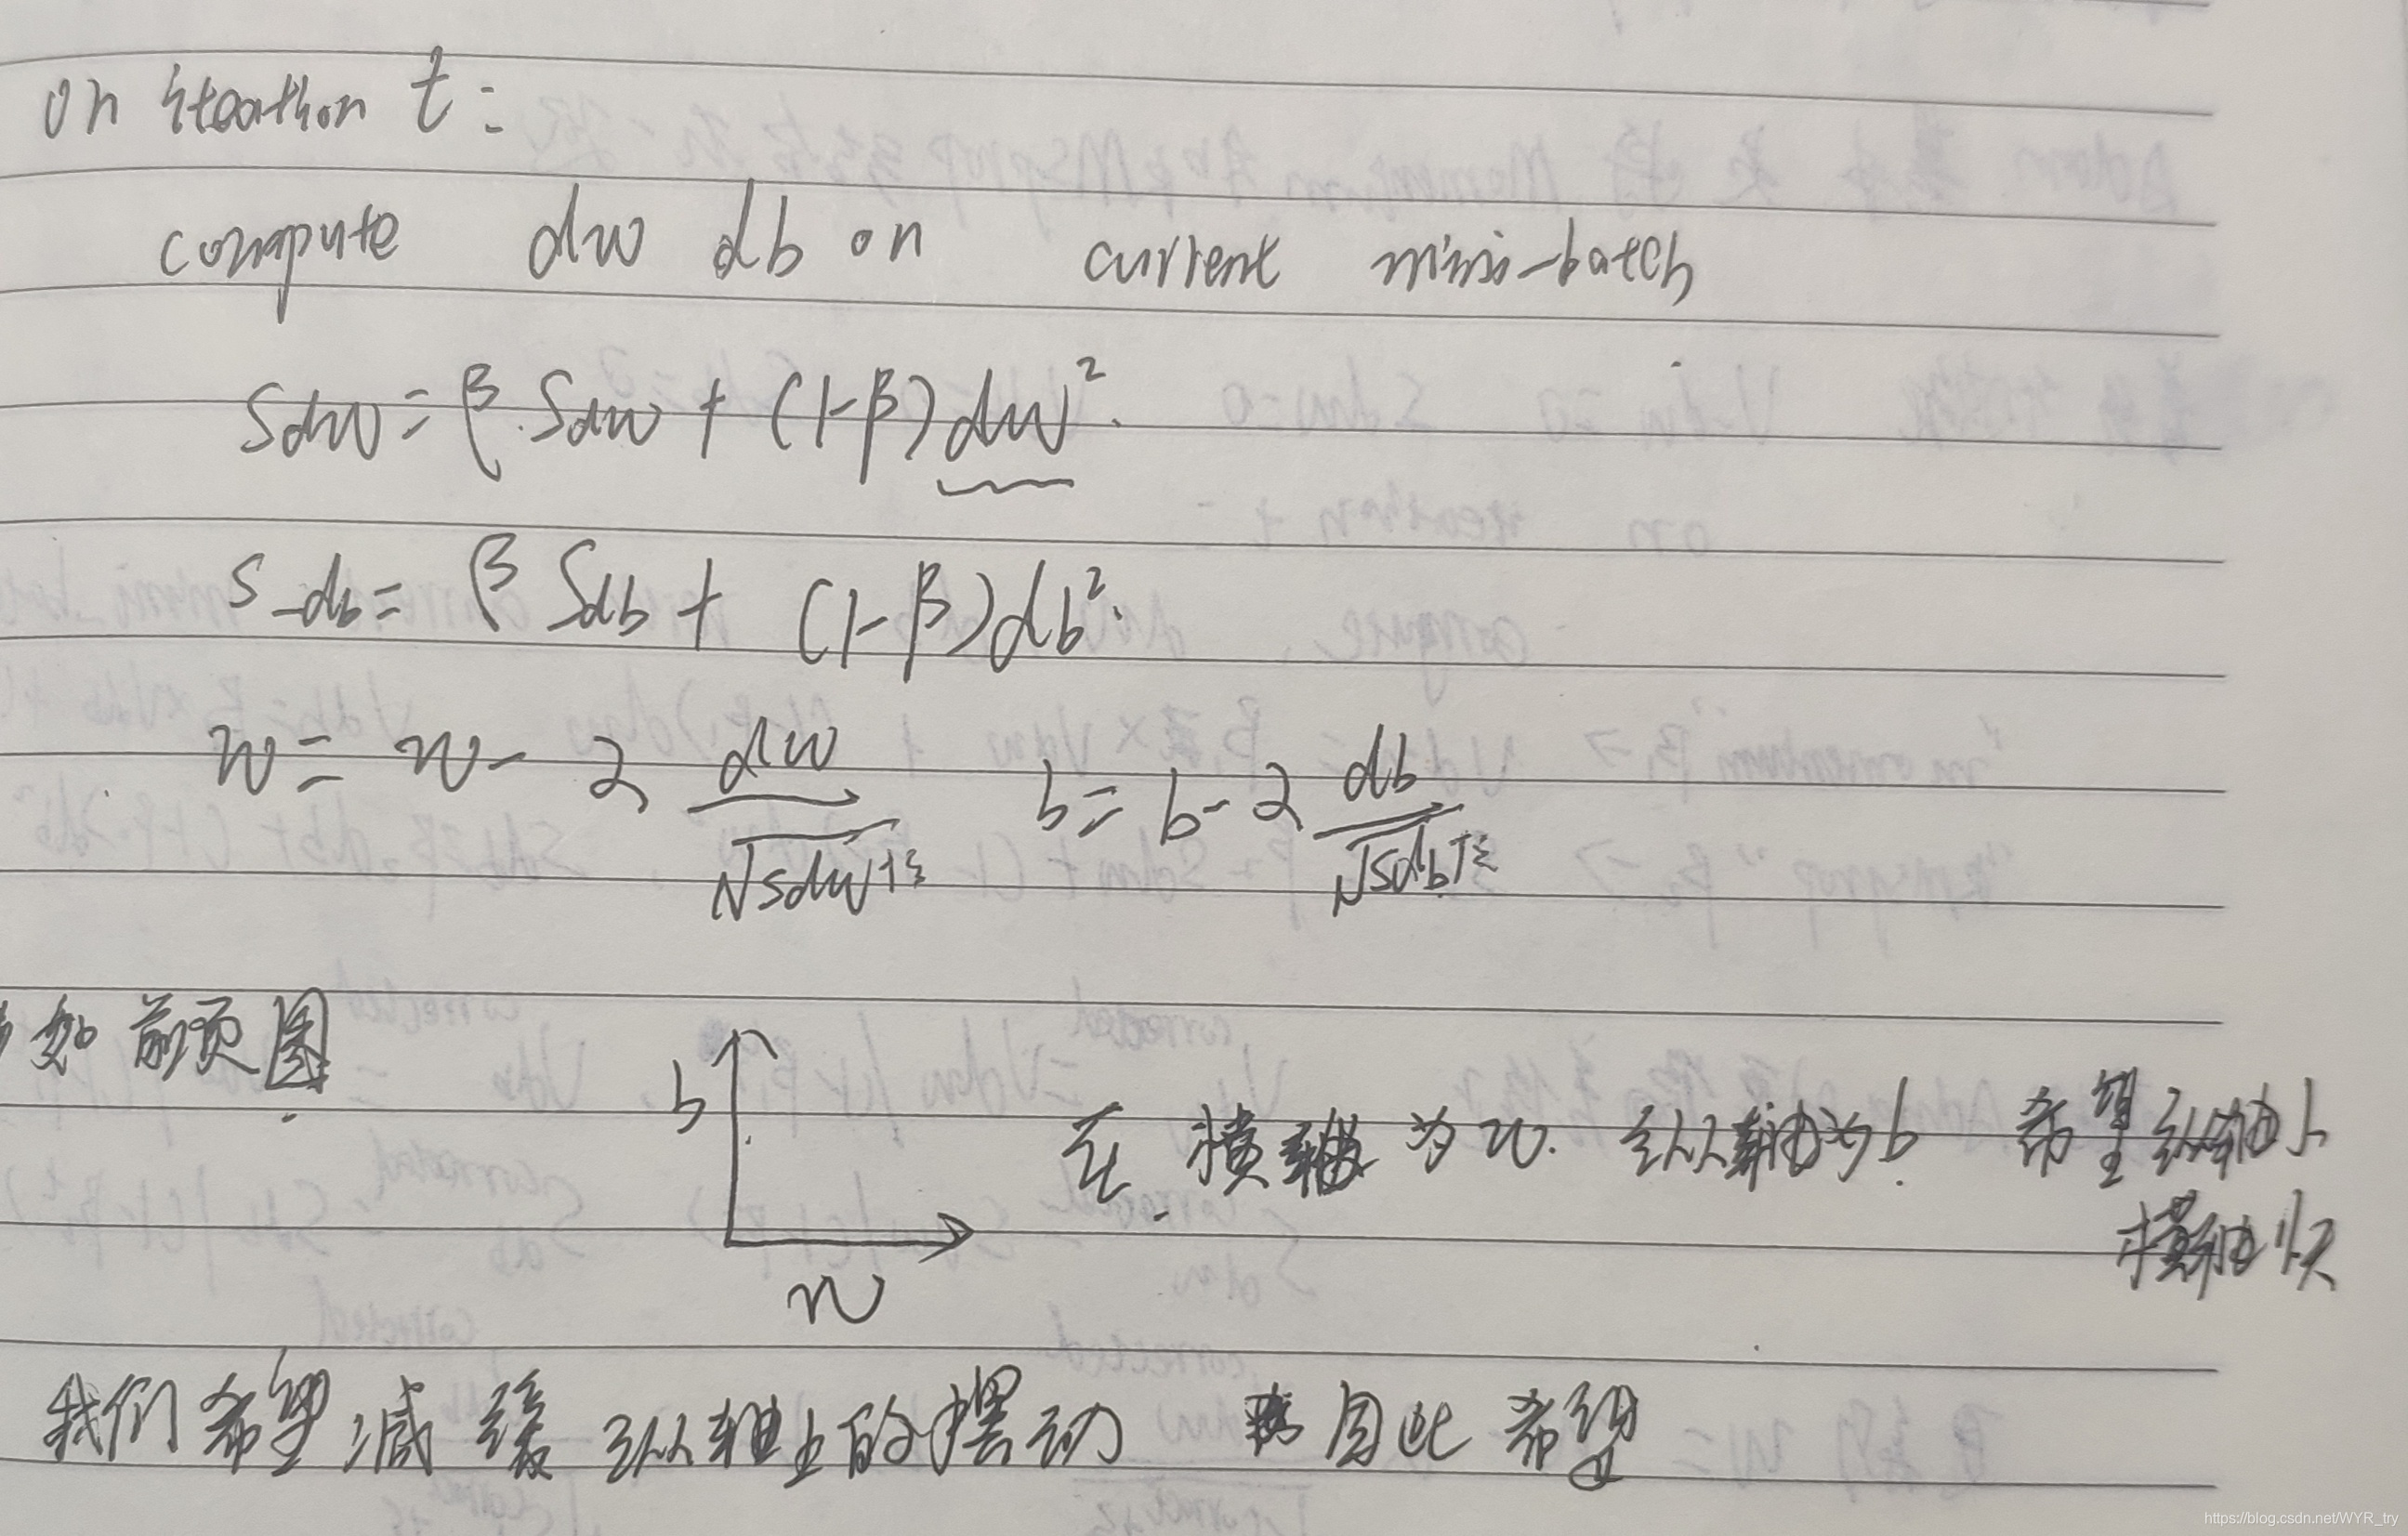 on iteation t:
compute dw db on current mini-batch
Sdw = β·Sdw + (1-β)dw².
S_db = β Sdb + (1-β)db².
w = w - α dw/√sdw+ε b = b - α db/√sdb+ε
如前页图
b
在横轴为w. 纵轴为b 希望纵轴小
横轴快
w
我们希望减缓纵轴上的摆动 因此希望
https://blog.csdn.net/WYR_try